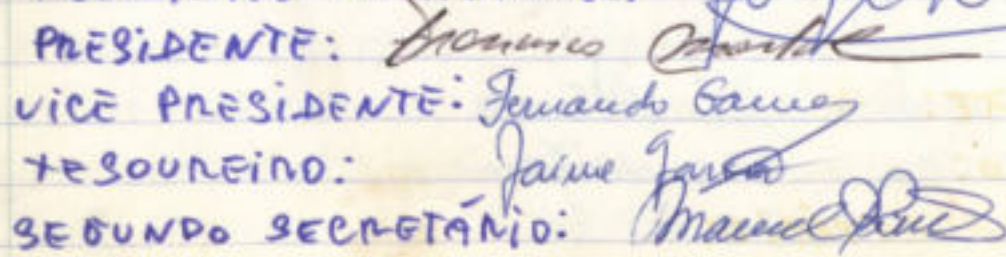 PRESIDENTE: Francisco
VICE PRESIDENTE: Fernando Gomes
TESOUREIRO: Jaime
SEGUNDO SECRETÁRIO: Manuel